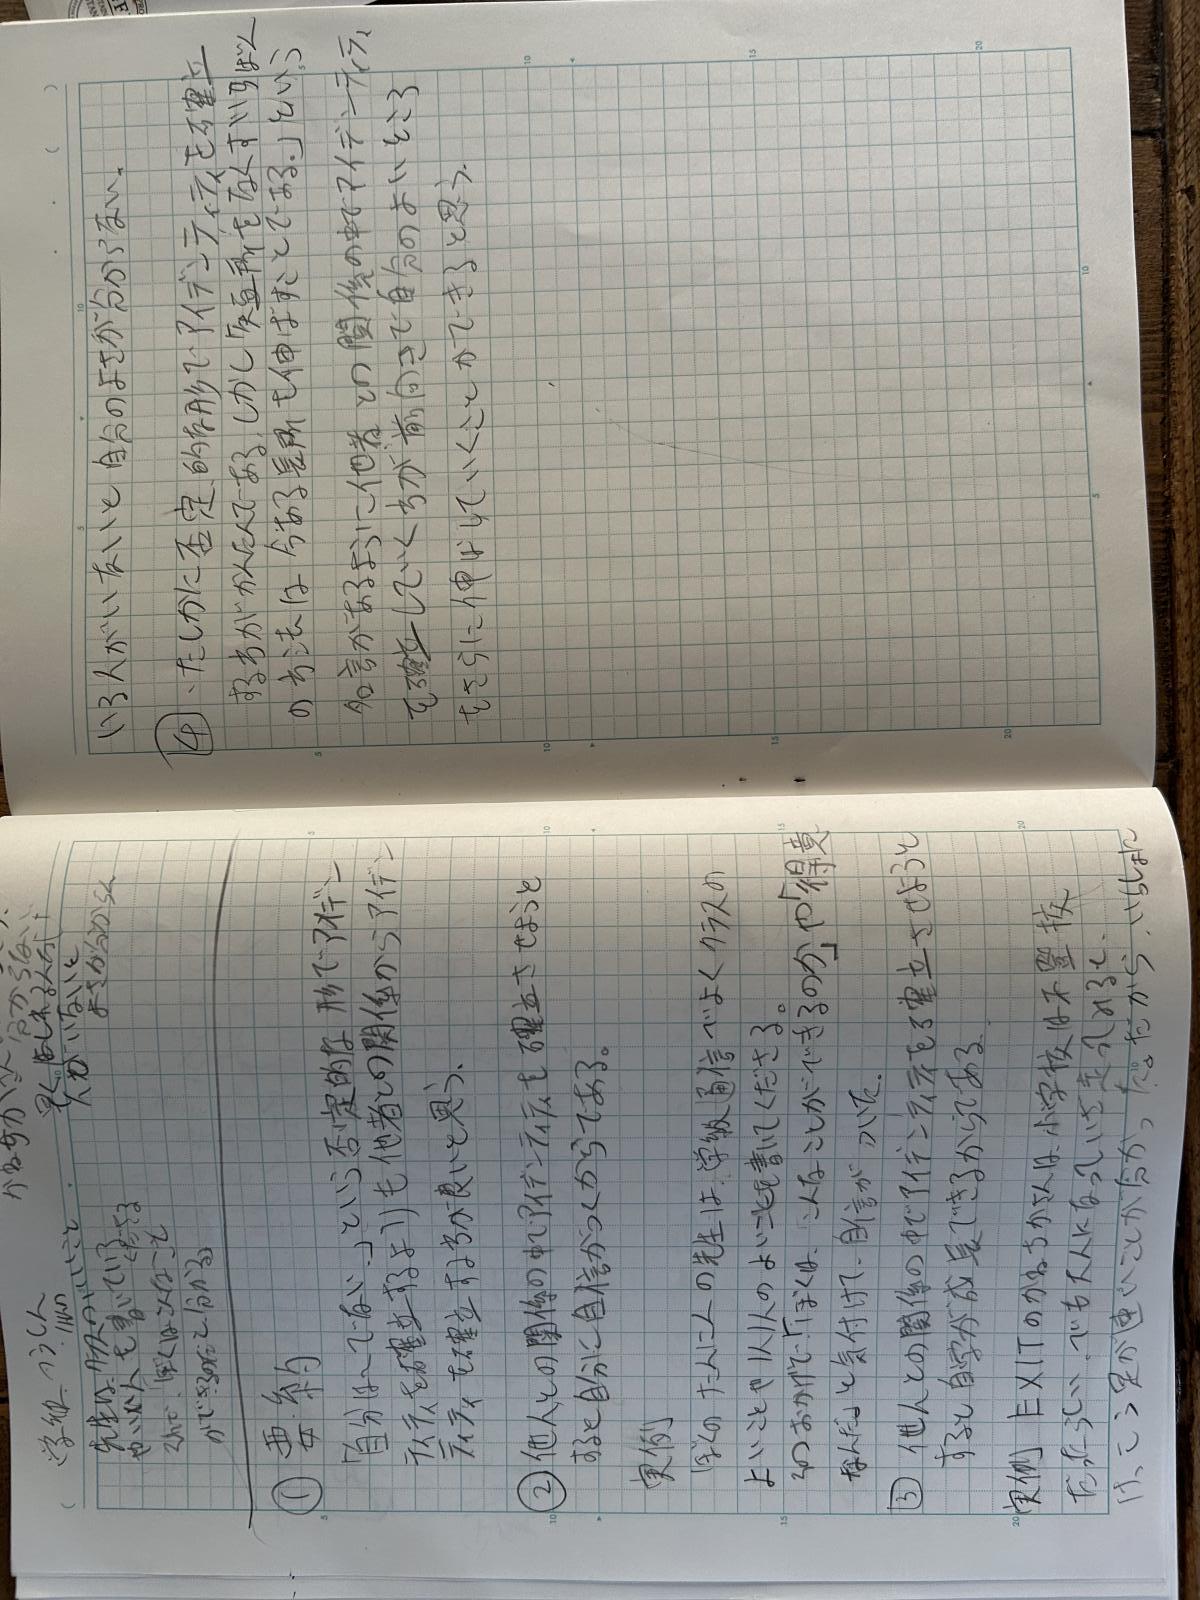 学級つうしん
先生は
① 要約
「自分は〜でない。」という否定的な形でアイデン
ティティを確立するよりも他者との関係からアイデ
ティティを確立する方が良いと思う。
② 他人との関係の中でアイデンティティを確立させようと
すると自分に自信がつくからである。
実例
ぼくのたんにんの先生は、学級通信でよくクラスの
よいことや一人一人のよいことを書いてくださる。
そのおかげで「ぼくは、こんなことができるのか」や「得意
なんだ」と気付けて、自信がついた。
③ 他人との関係の中でアイデンティティを確立させようと
すると自学が成長できるからである。
実例 EXITのかねちかさんは小学校は不登校
だったらしい。でも大人になっていさ
けっこう足が速いことが分かった。だから、いっしょに
いる人がいないと自分のよさが分からない。
④ 、たしかに否定的な形でアイデンティティを確立
する方がかんたんである。しかし「短所をなくすいちばん
の方法は今ある長所を伸ばすことである。」という
名言があるように他者との関係の中でアイデンティティ
を確立していく方が前向きで自分のよいところ
をさらに伸ばしていくことができると思う。